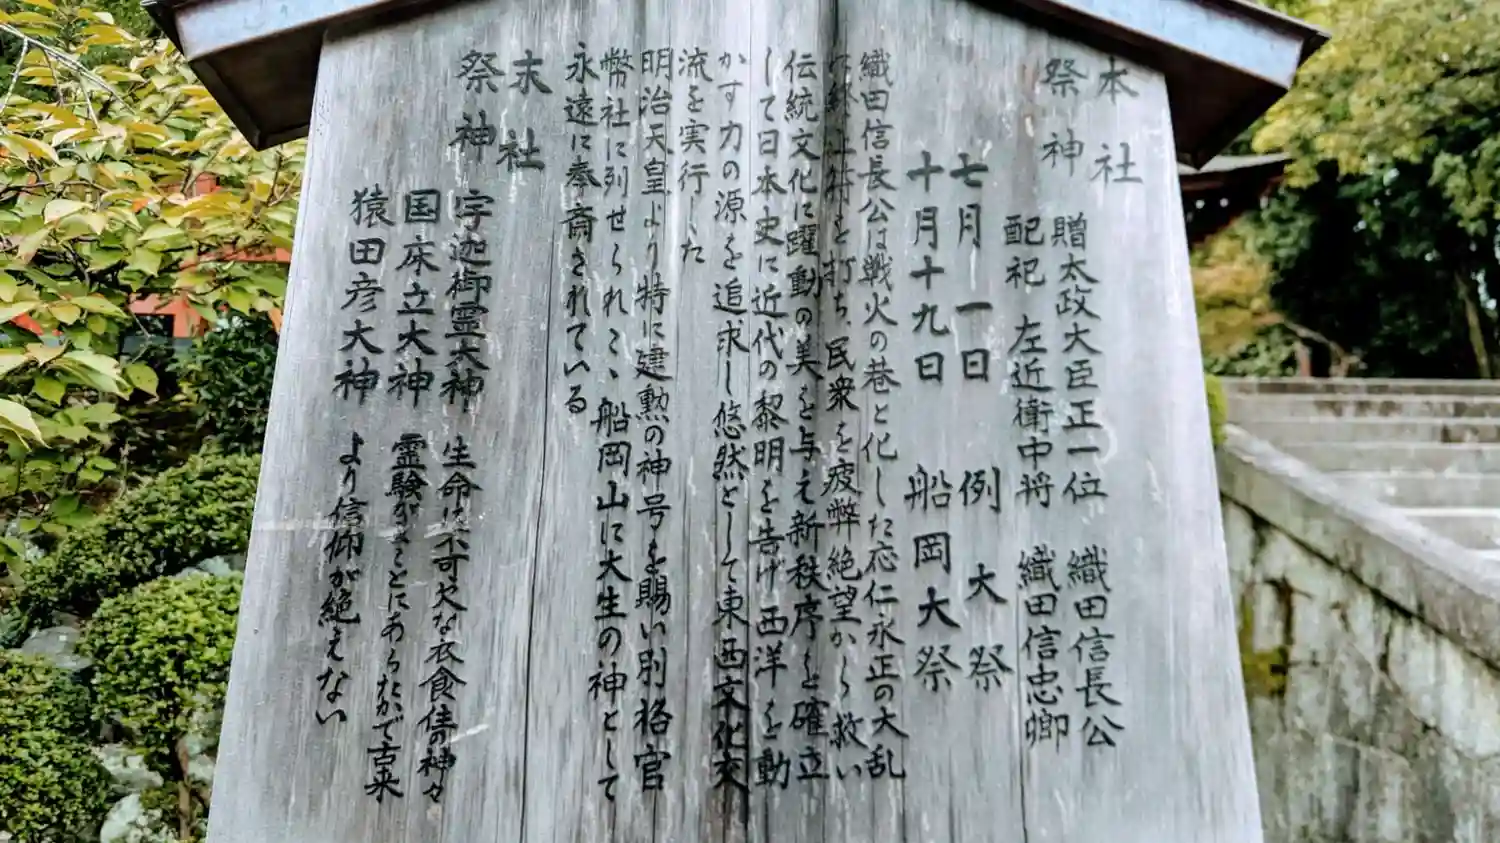 本社
祭神
贈太政大臣正一位 織田信長公
配祀 左近衛中将 織田信忠卿
七月一日 例大祭
十月十九日 船岡大祭
織田信長公は戦火の巷と化した応仁永正の大乱
終止符を打ち、民衆を疲弊絶望から救い
伝統文化に躍動の美を与え新秩序を確立
して日本史に近代の黎明を告げ西洋を動
かす力の源を追求し悠然として東西文化交
流を実行した
明治天皇より特に建勲の神号を賜い別格官
幣社に列せられ、船岡山に大生の神として
永遠に奉斎されている
末社
祭神
宇迦御霊大神
国床立大神
猿田彦大神
生命に不可欠な衣食住の神々
霊験がまことにあらたかで古来
より信仰が絶えない